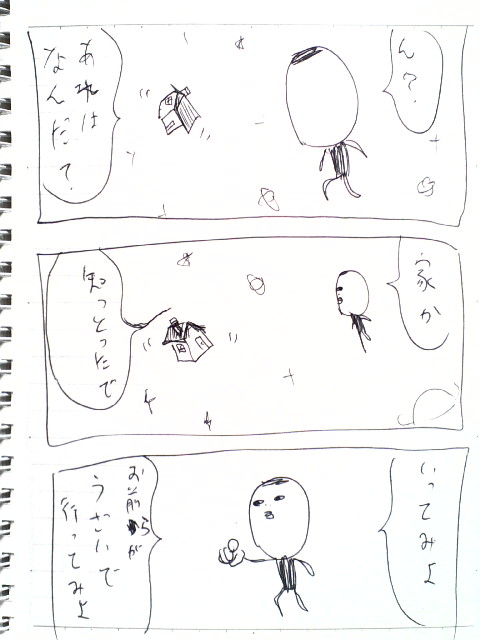 ん?
あれは
なんだ?
家か
知っとったで
いってみよ
お前らが
うさいで
行ってみよ